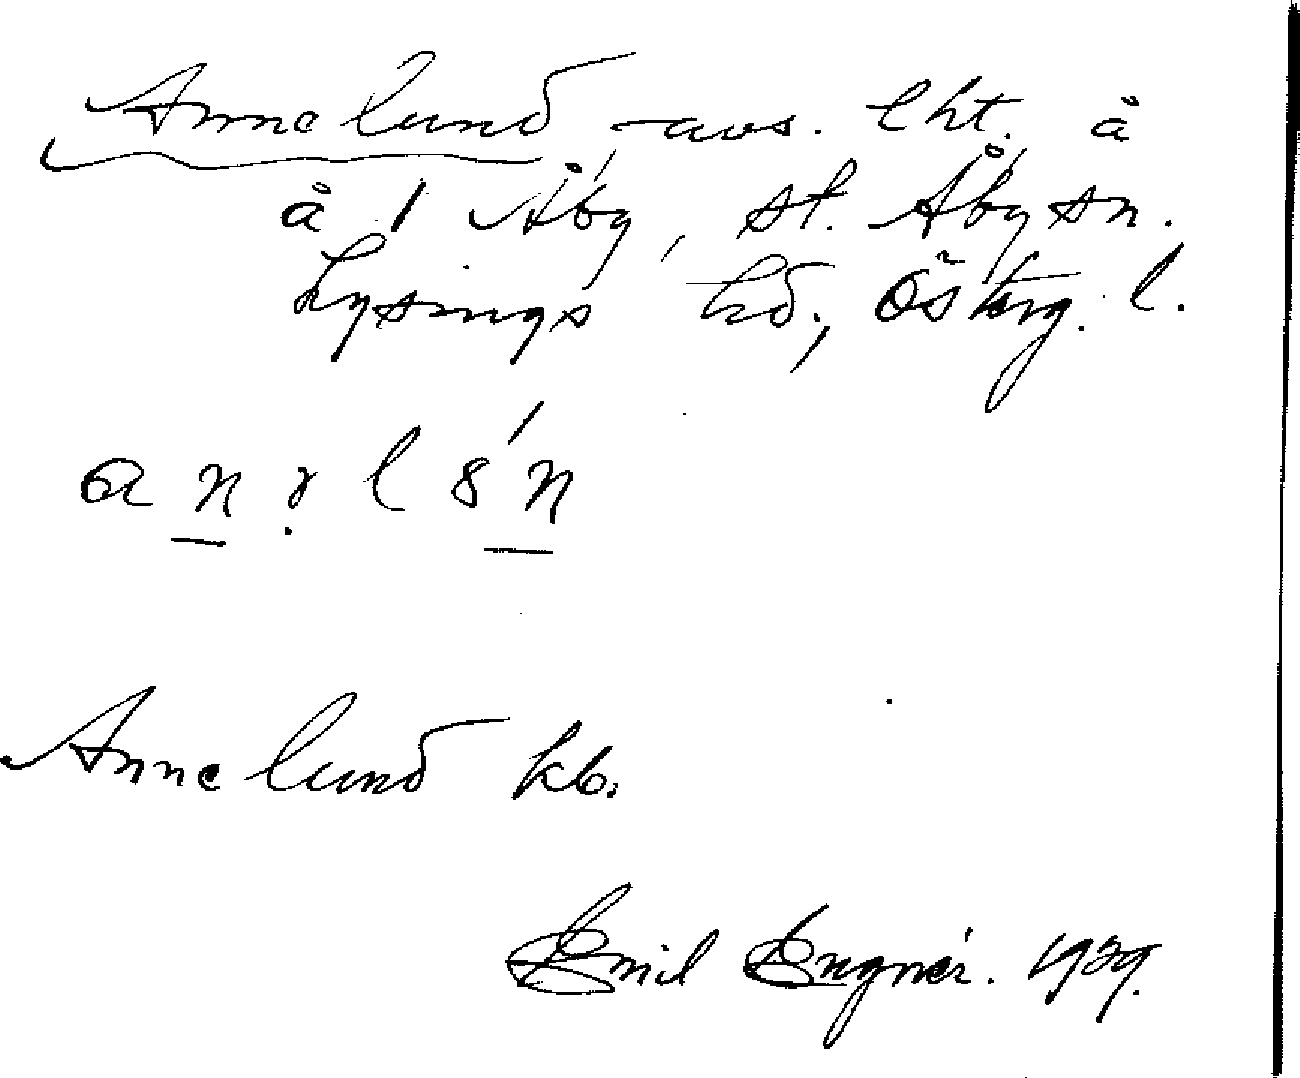 Annelund, avs. lht. å
å 1 Åby, st. Åby sn.
Lysings hd., Österg. l.
Annelund kb.
Emil Engnér. 1929.